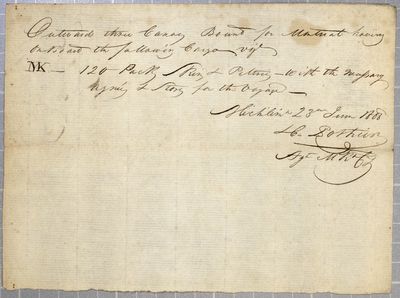 Outward three Canoes Bound for Montreal having
on Board the following Cargo viz
MK — 120 Packs Skins & Peltries — With the necessary
& Stores for the Voyage —
23 June 1808
Agt M Co